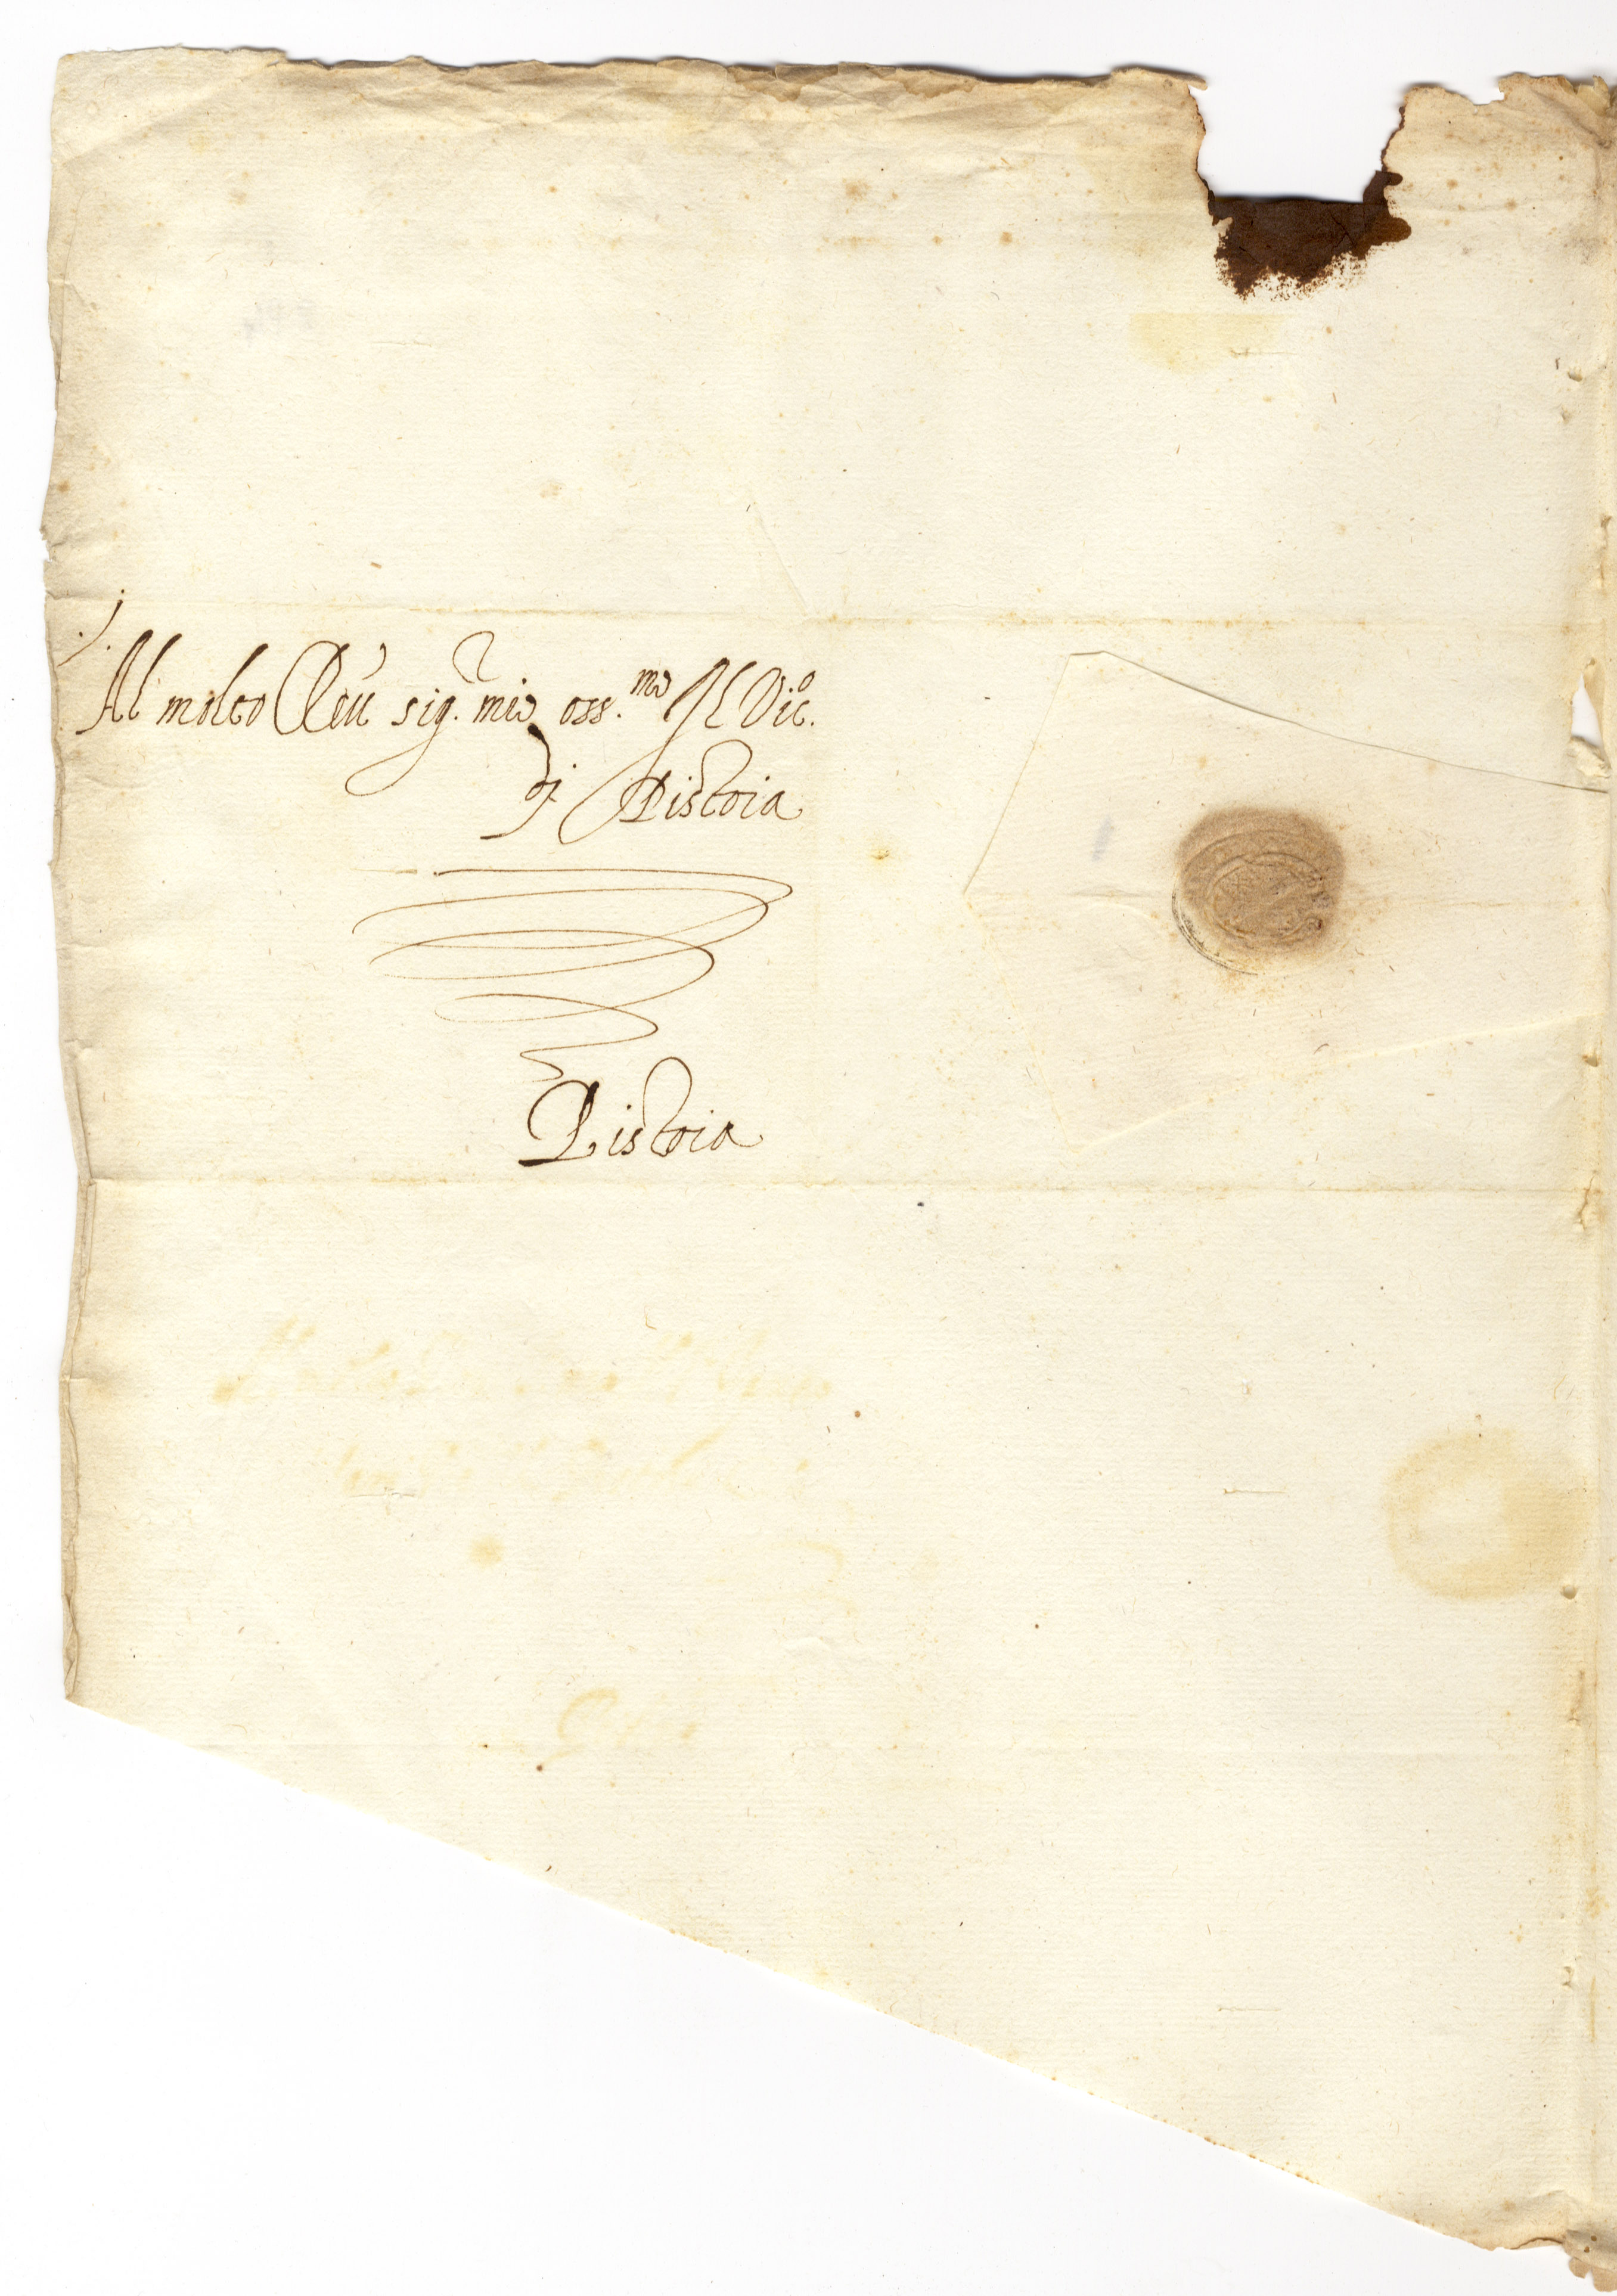 Al molto Reu sig.r mio oss.mo Il Vic.o
di Pistoia
Pistoia